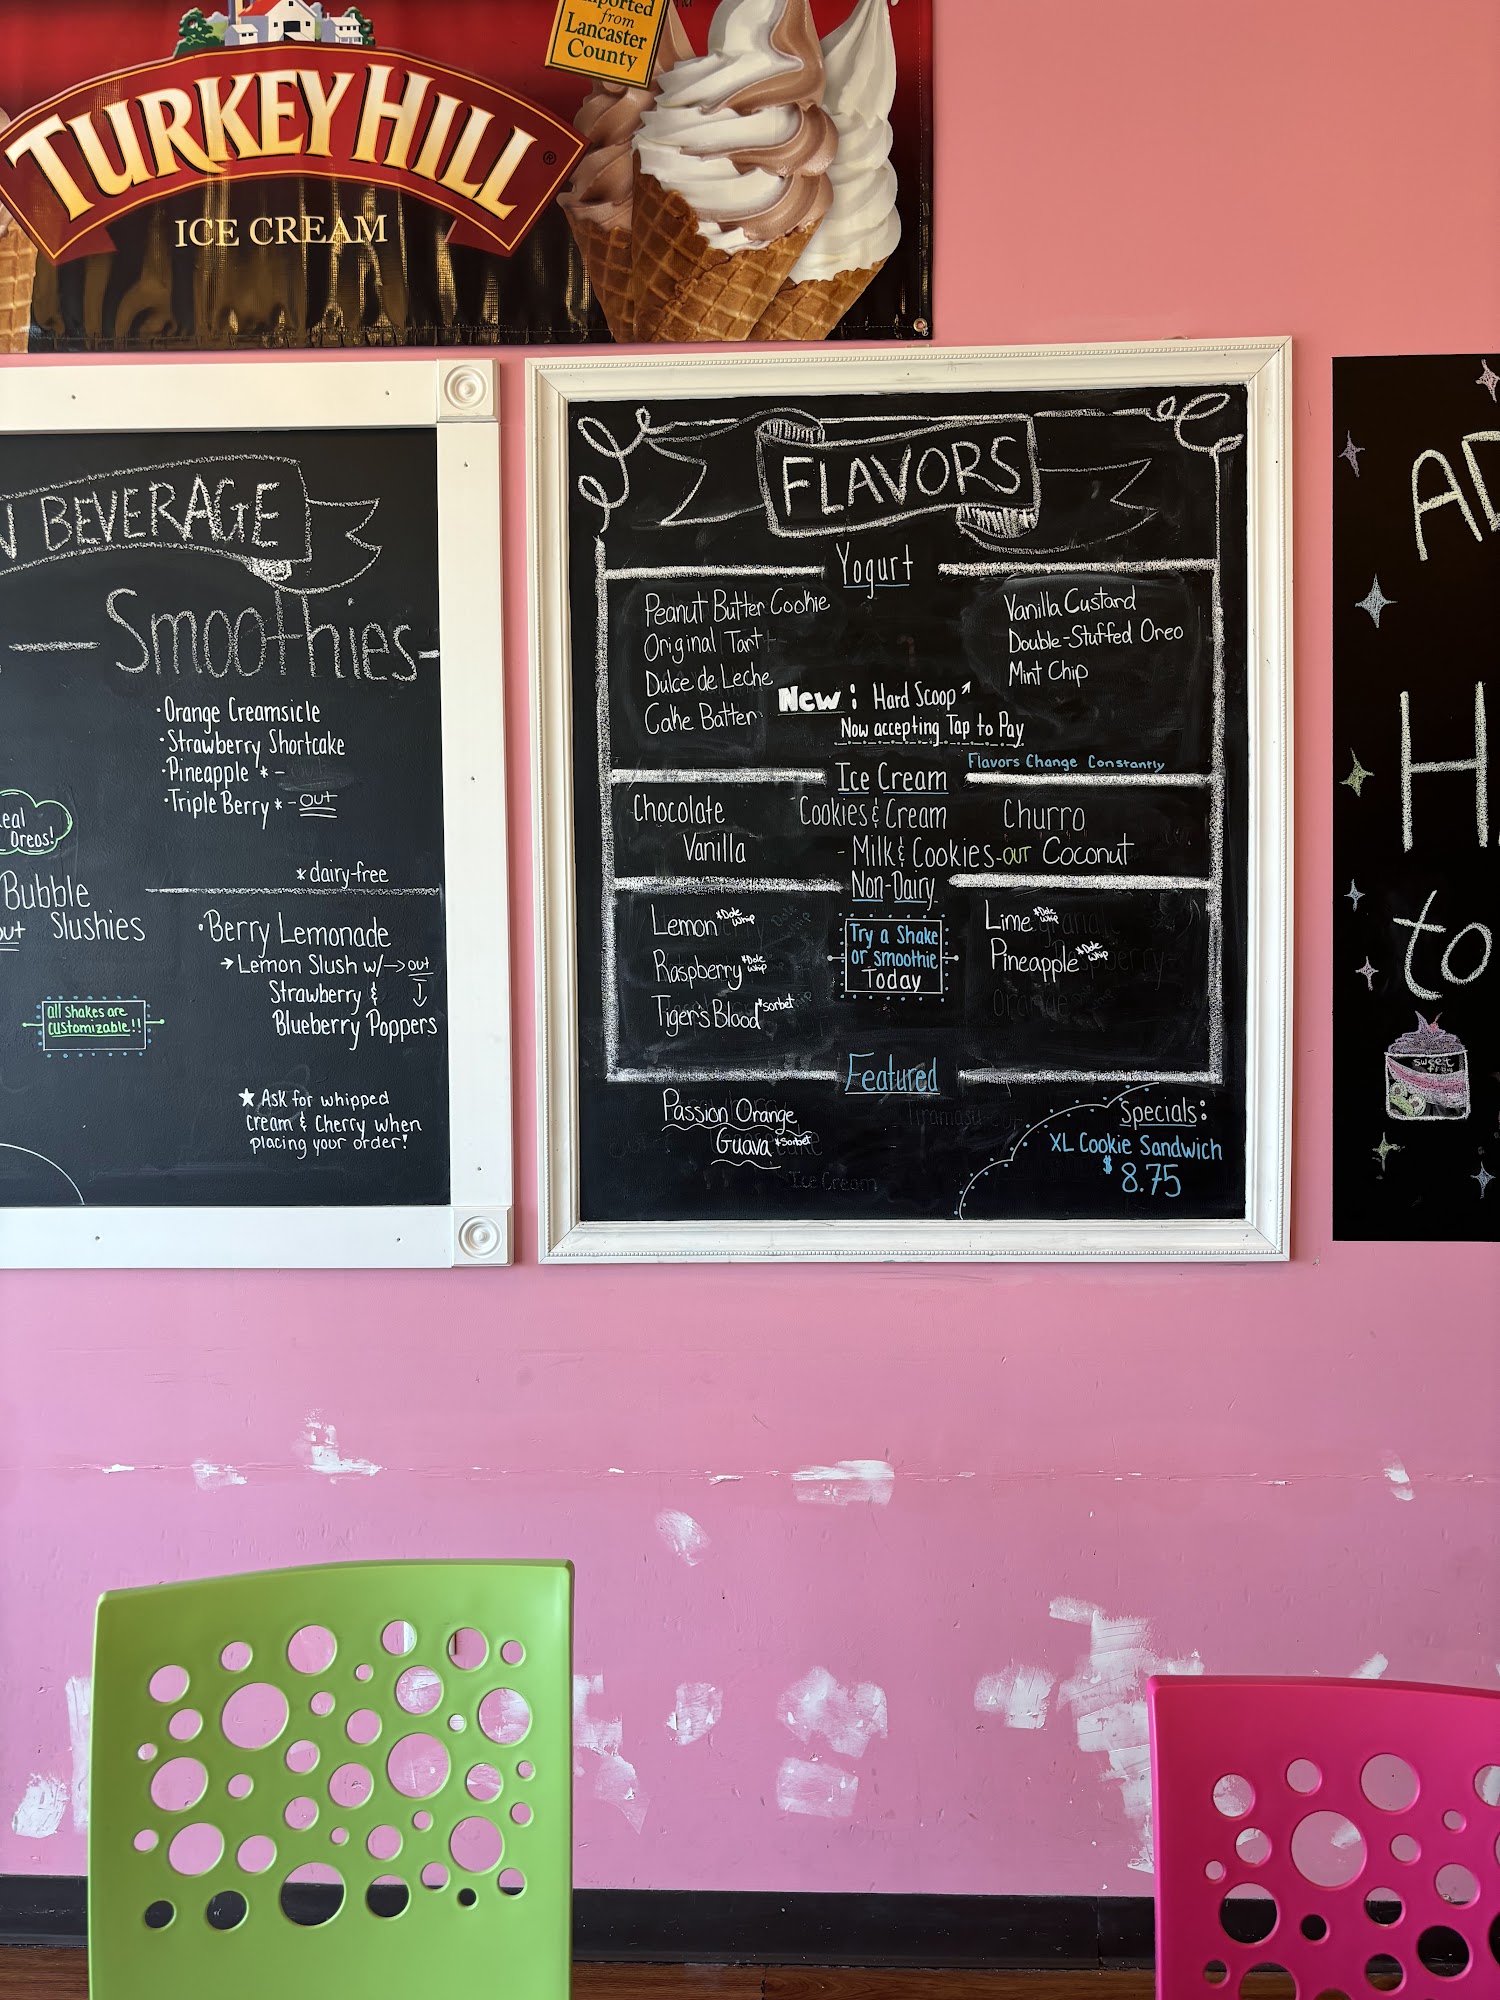 Imported
from
Lancaster
County
TURKEY HILL
®
ICE CREAM
BEVERAGE
Smoothies-
·Orange Creamsicle
·Strawberry Shortcake
·Pineapple * -
·Triple Berry * - out
Oreos!
*dairy-free
Bubble
Slushies
·Berry Lemonade
→Lemon Slush w/→out
Strawberry &
Blueberry Poppers
all shakes are
customizable!!
★ Ask for whipped
cream & Cherry when
placing your order!
FLAVORS
Yogurt
Peanut Butter Cookie
Original Tart
Dulce de Leche
Cake Batter
Vanilla Custard
Double-Stuffed Oreo
Mint Chip
New: Hard Scoop ↗
Now accepting Tap to Pay
Flavors Change Constantly
Ice Cream
Chocolate
Cookies & Cream
Churro
Vanilla
- Milk & Cookies-OUT
Coconut
Non-Dairy
Lemon *Dole Whip
Raspberry *Dole Whip
Tiger's Blood *sorbet
Try a Shake
or smoothie
Today
Lime *Dole Whip
Pineapple *Dole Whip
Featured
Passion Orange
Guava *Sorbet
Specials:
XL Cookie Sandwich
$8.75
to
sweet
frog